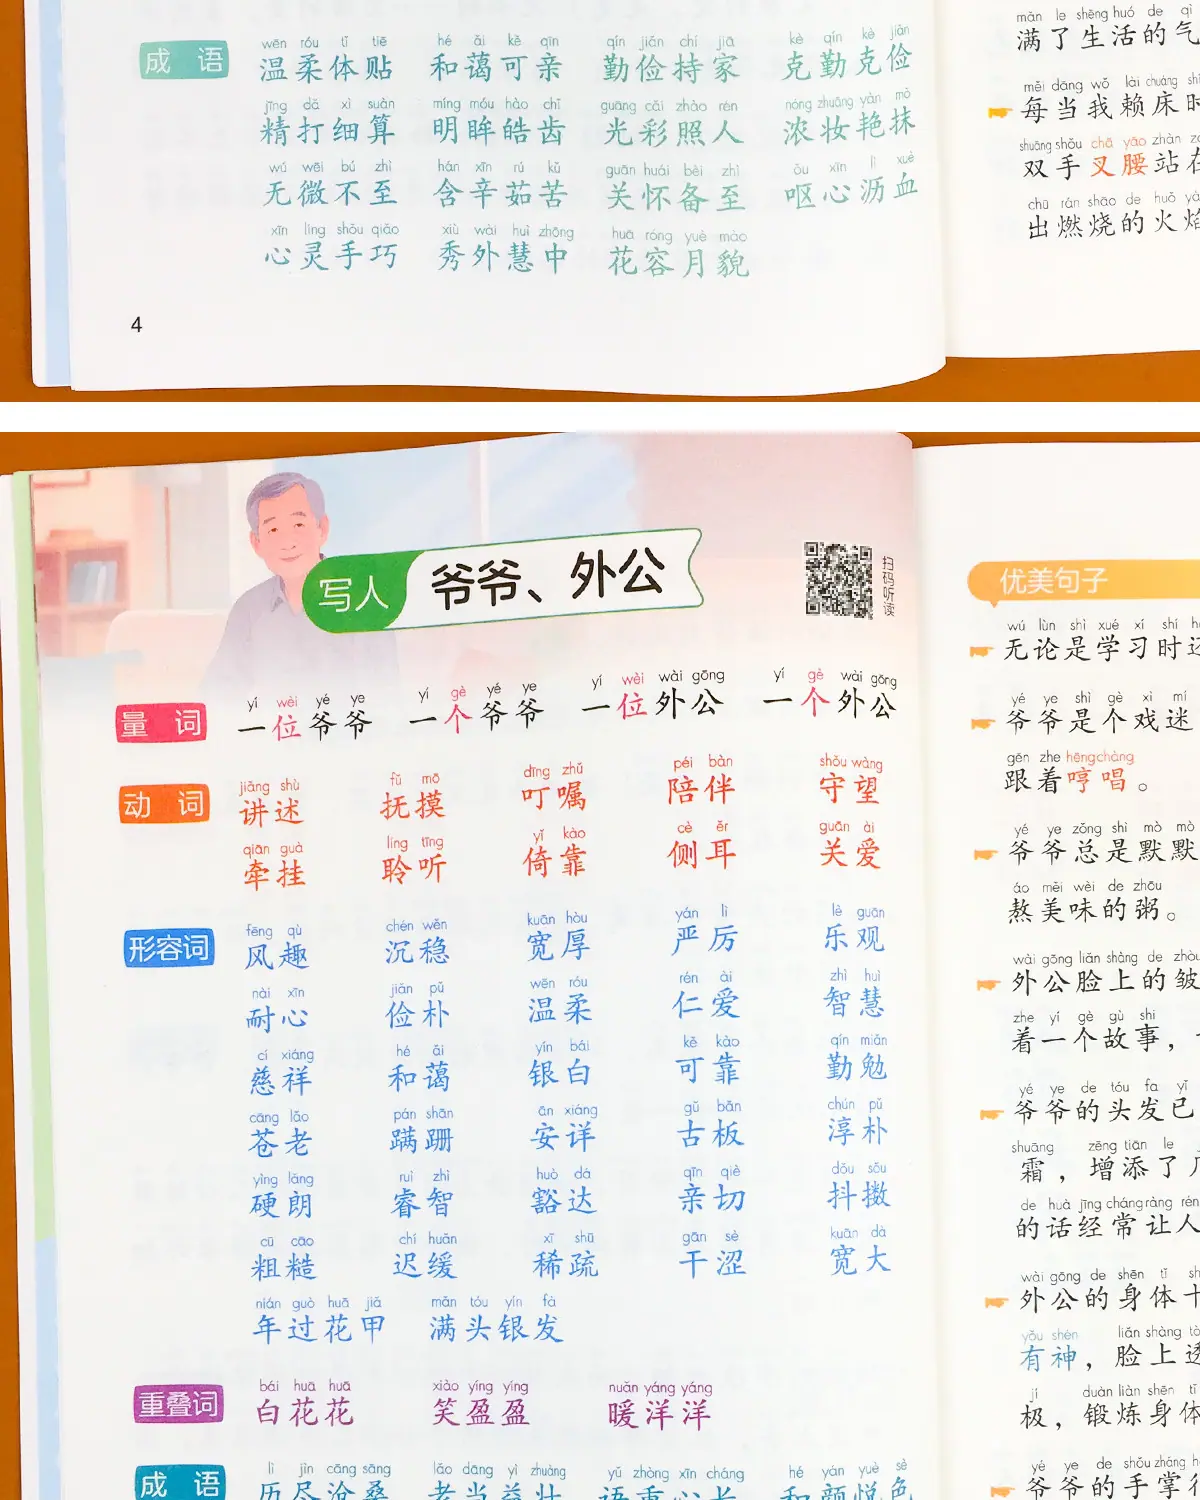 wēn róu tǐ tiē hé ǎi kě qīn qín jiǎn chí jiā kè qín kè jiǎn
成 语 温柔体贴 和蔼可亲 勤俭持家 克勤克俭
jīng dǎ xì suàn míng móu hào chǐ guāng cǎi zhào rén nóng zhuāng yàn mǒ
精打细算 明眸皓齿 光彩照人 浓妆艳抹
wú wēi bú zhì hán xīn rú kǔ guān huái bèi zhì ǒu xīn lì xuè
无微不至 含辛茹苦 关怀备至 呕心沥血
xīn líng shǒu qiǎo xiù wài huì zhōng huā róng yuè mào
心灵手巧 秀外慧中 花容月貌
4
mǎn le shēng huó de qì
满了生活的气
měi dāng wǒ lài chuáng shí
每当我赖床时
shuāng shǒu chā yāo zhàn
双手叉腰站在
chū rán shāo de huǒ
出燃烧的火焰
写人 爷爷、外公
扫码听读
yí wèi yé ye yí gè yé ye yí wèi wài gōng yí gè wài gōng
量 词 一位爷爷 一个爷爷 一位外公 一个外公
jiǎng shù fǔ mō dīng zhǔ péi bàn shǒu wàng
动 词 讲述 抚摸 叮嘱 陪伴 守望
qiān guà líng tīng yǐ kào cè ěr guān ài
牵挂 聆听 倚靠 侧耳 关爱
fēng qù chén wěn kuān hòu yán lì lè guān
形容词 风趣 沉稳 宽厚 严厉 乐观
nài xīn jiǎn pǔ wēn róu rén ài zhì huì
耐心 俭朴 温柔 仁爱 智慧
cí xiáng hé ǎi yín bái kě kào qín miǎn
慈祥 和蔼 银白 可靠 勤勉
cāng lǎo pán shān ān xiáng gǔ bǎn chún pǔ
苍老 蹒跚 安详 古板 淳朴
yìng lǎng ruì zhì huò dá qīn qiè dǒu sǒu
硬朗 睿智 豁达 亲切 抖擞
cū cāo chí huǎn xī shū gān sè kuān dà
粗糙 迟缓 稀疏 干涩 宽大
nián guò huā jiǎ mǎn tóu yín fà
年过花甲 满头银发
bái huā huā xiào yíng yíng nuǎn yáng yáng
重叠词 白花花 笑盈盈 暖洋洋
lì jìn cāng sāng lǎo dāng yì zhuàng yǔ zhòng xīn cháng hé yán yuè sè
成 语 历尽沧桑 老当益壮 语重心长 和颜悦色
优美句子
wú lùn shì xué xí shí
无论是学习时还
yé ye shì gè xì mí
爷爷是个戏迷
gēn zhe hēng chàng
跟着哼唱。
yé ye zǒng shì mò mò
爷爷总是默默
áo měi wèi de zhōu
熬美味的粥。
wài gōng liǎn shàng de zhòu
外公脸上的皱
zhe yí gè gù shi
着一个故事，
yé ye de tóu fa yǐ
爷爷的头发已
shuāng zēng tiān le
霜，增添了几
de huà jīng cháng ràng rén
的话经常让人
wài gōng de shēn tǐ
外公的身体十
yǒu shén liǎn shàng tòu
有神，脸上透
jí duàn liàn shēn tǐ
极，锻炼身体
yé ye de shǒu zhǎng
爷爷的手掌很